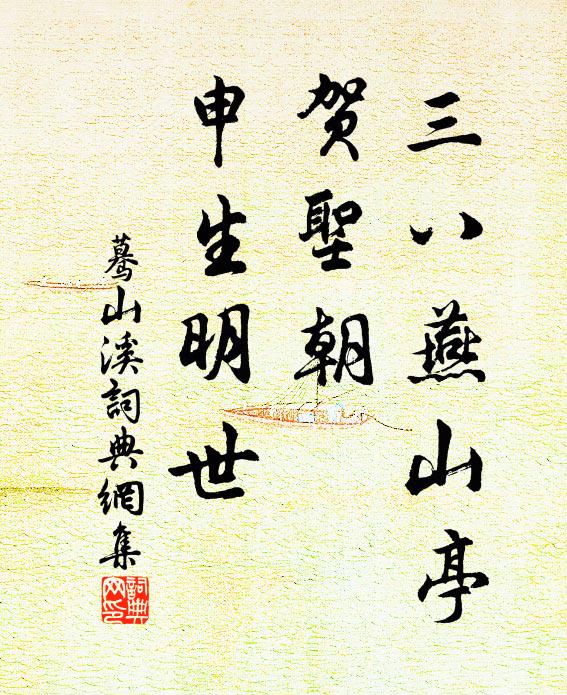 三八燕山亭
賀聖朝
申生明世
蓦山溪詞典網集
詞典网印